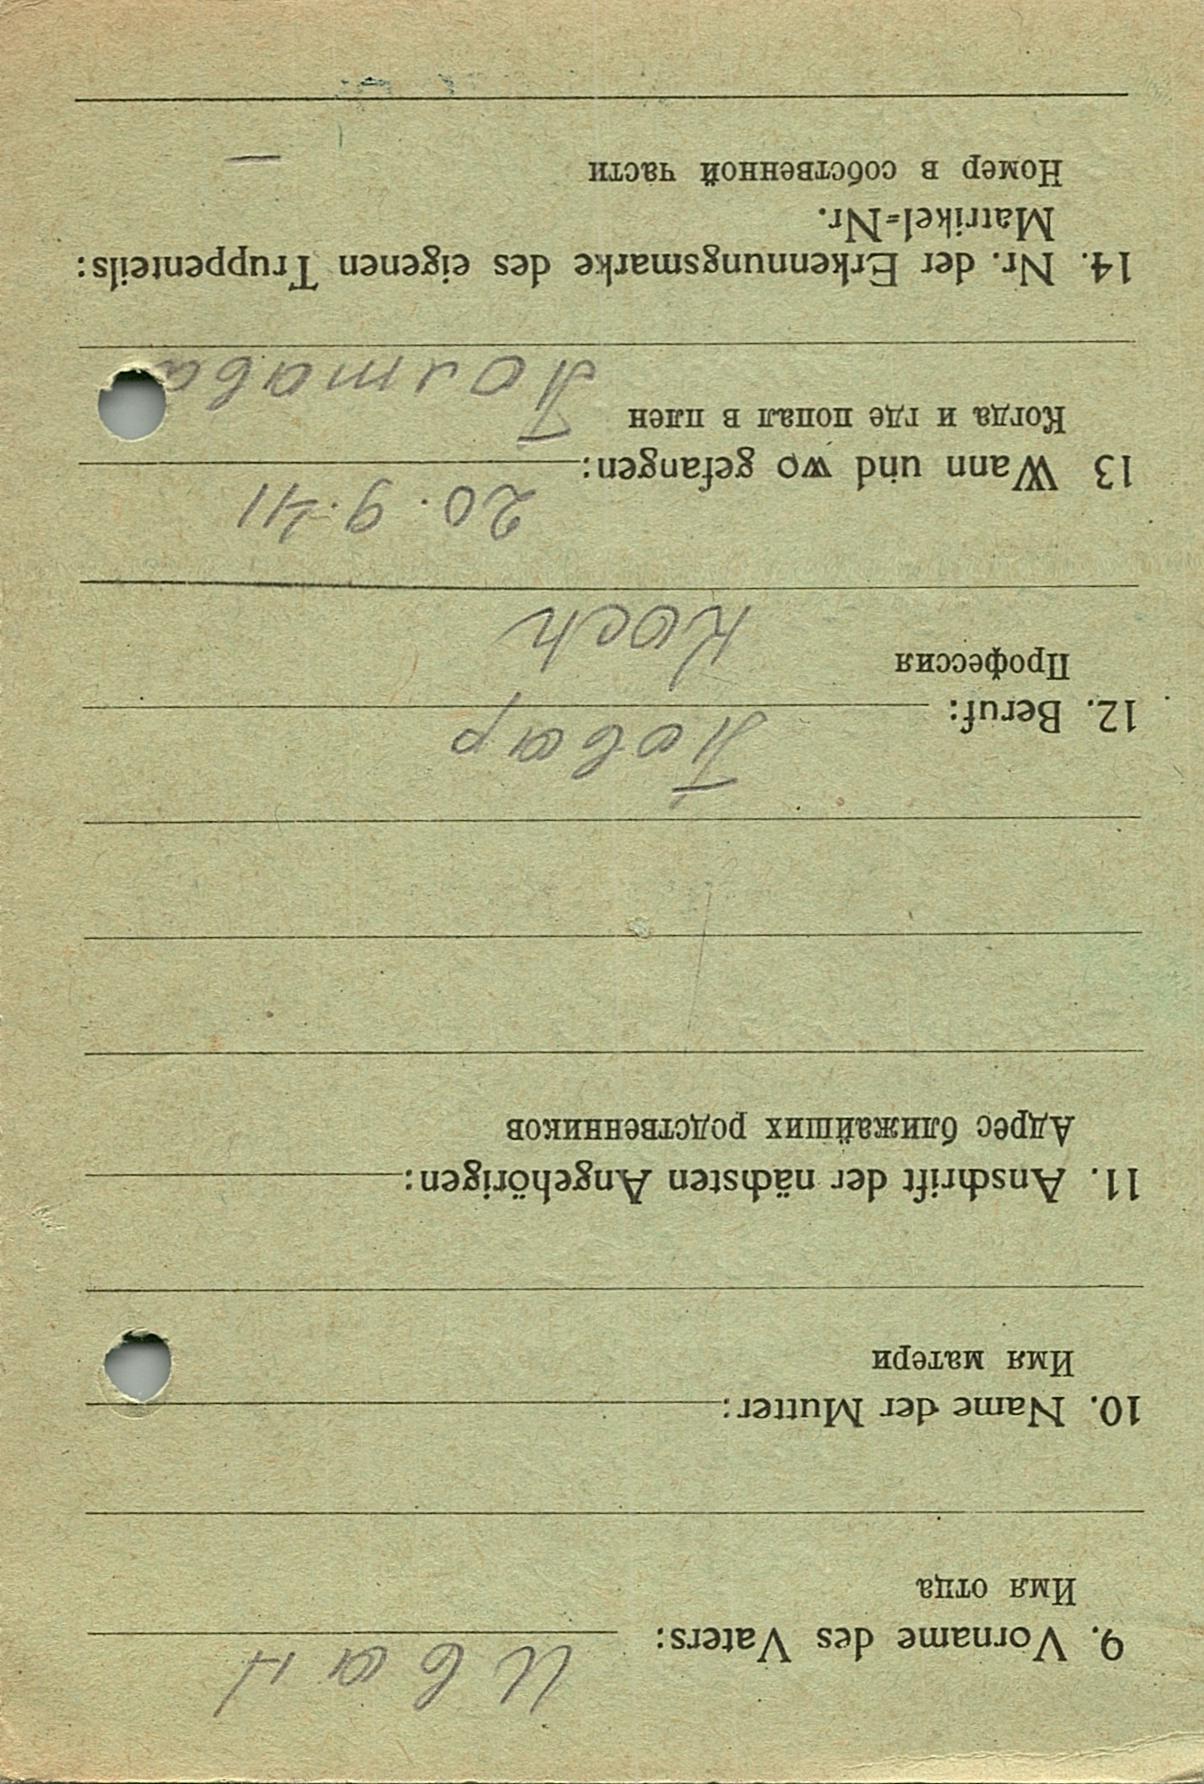 9. Vorname des Vaters: Иван
Имя отца
10. Name der Mutter:
Имя матери
11. Anschrift der nächsten Angehörigen:
Адрес ближайших родственников
12. Beruf: Повар
Профессия Koch
13 Wann und wo gefangen: 20.9.41
Когда и где попал в плен Полтава
14. Nr. der Erkennungsmarke des eigenen Truppenteils:
Matrikel=Nr.
Номер в собственной части —